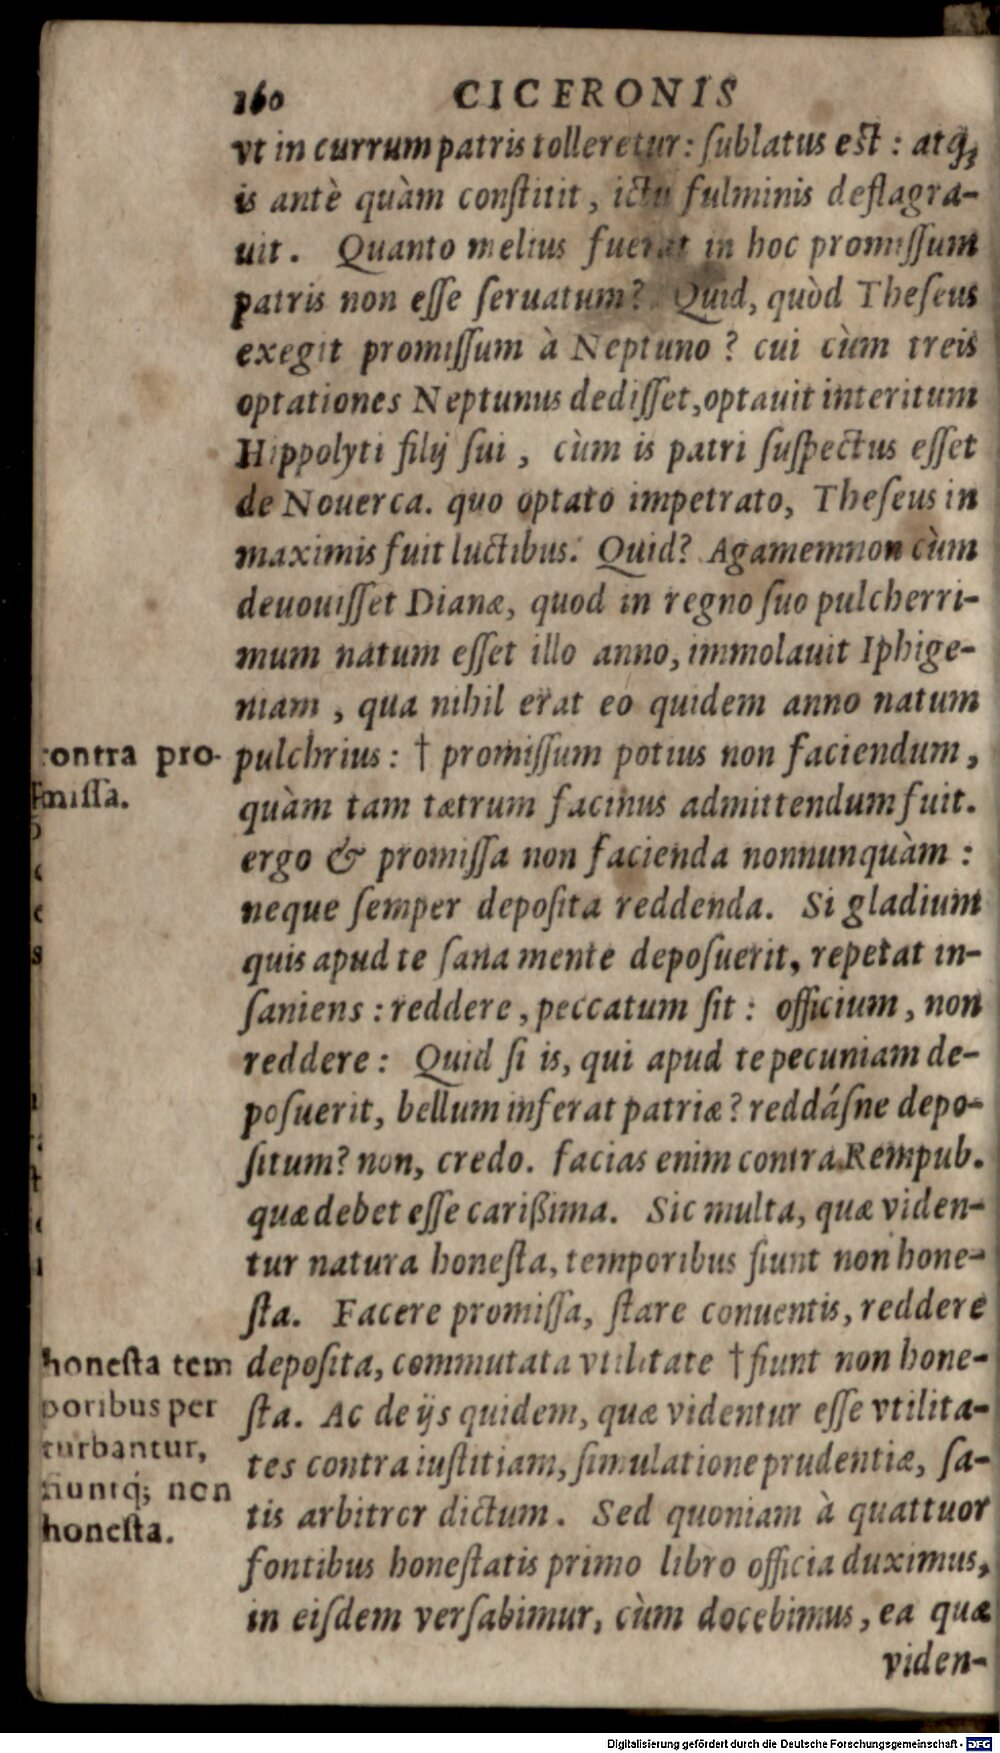 160 CICERONIS
vt in currum patris tolleretur: ſublatus eſt: atq́;
is antè quàm conſtitit, ictu fulminis deflagra-
uit. Quanto melius fuerat in hoc promiſſum
patris non eſſe ſeruatum? Quid, quòd Theſeus
exegit promiſſum à Neptuno? cui cùm treis
optationes Neptunus dediſſet, optauit interitum
Hippolyti filij ſui, cùm is patri ſuſpectus eſſet
de Nouerca. quo optato impetrato, Theſeus in
maximis fuit luctibus. Quid? Agamemnon cùm
deuouiſſet Dianæ, quod in regno ſuo pulcherri-
mum natum eſſet illo anno, immolauit Iphige-
niam, qua nihil erat eo quidem anno natum
pulchrius: † promiſſum potius non faciendum,
quàm tam tætrum facinus admittendum fuit.
ergo & promiſſa non facienda nonnunquàm:
neque ſemper depoſita reddenda. Si gladium
quis apud te ſana mente depoſuerit, repetat in-
ſaniens: reddere, peccatum ſit: officium, non
reddere: Quid ſi is, qui apud te pecuniam de-
poſuerit, bellum inferat patriæ? reddáſne depo-
ſitum? non, credo. facias enim contra Rempub.
quæ debet eſſe carißima. Sic multa, quæ viden-
tur natura honeſta, temporibus fiunt non hone-
ſta. Facere promiſſa, ſtare conuentis, reddere
depoſita, commutata vtilitate † fiunt non hone-
ſta. Ac de ijs quidem, quæ videntur eſſe vtilita-
tes contra iuſtitiam, ſimulatione prudentiæ, ſa-
tis arbitror dictum. Sed quoniam à quattuor
fontibus honeſtatis primo libro officia duximus,
in eiſdem verſabimur, cùm docebimus, ea quæ
viden-
contra pro-
miſſa.
honeſta tem
poribus per
turbantur,
fiuntq́; non
honeſta.
Digitalisierung gefördert durch die Deutsche Forschungsgemeinschaft - DFG